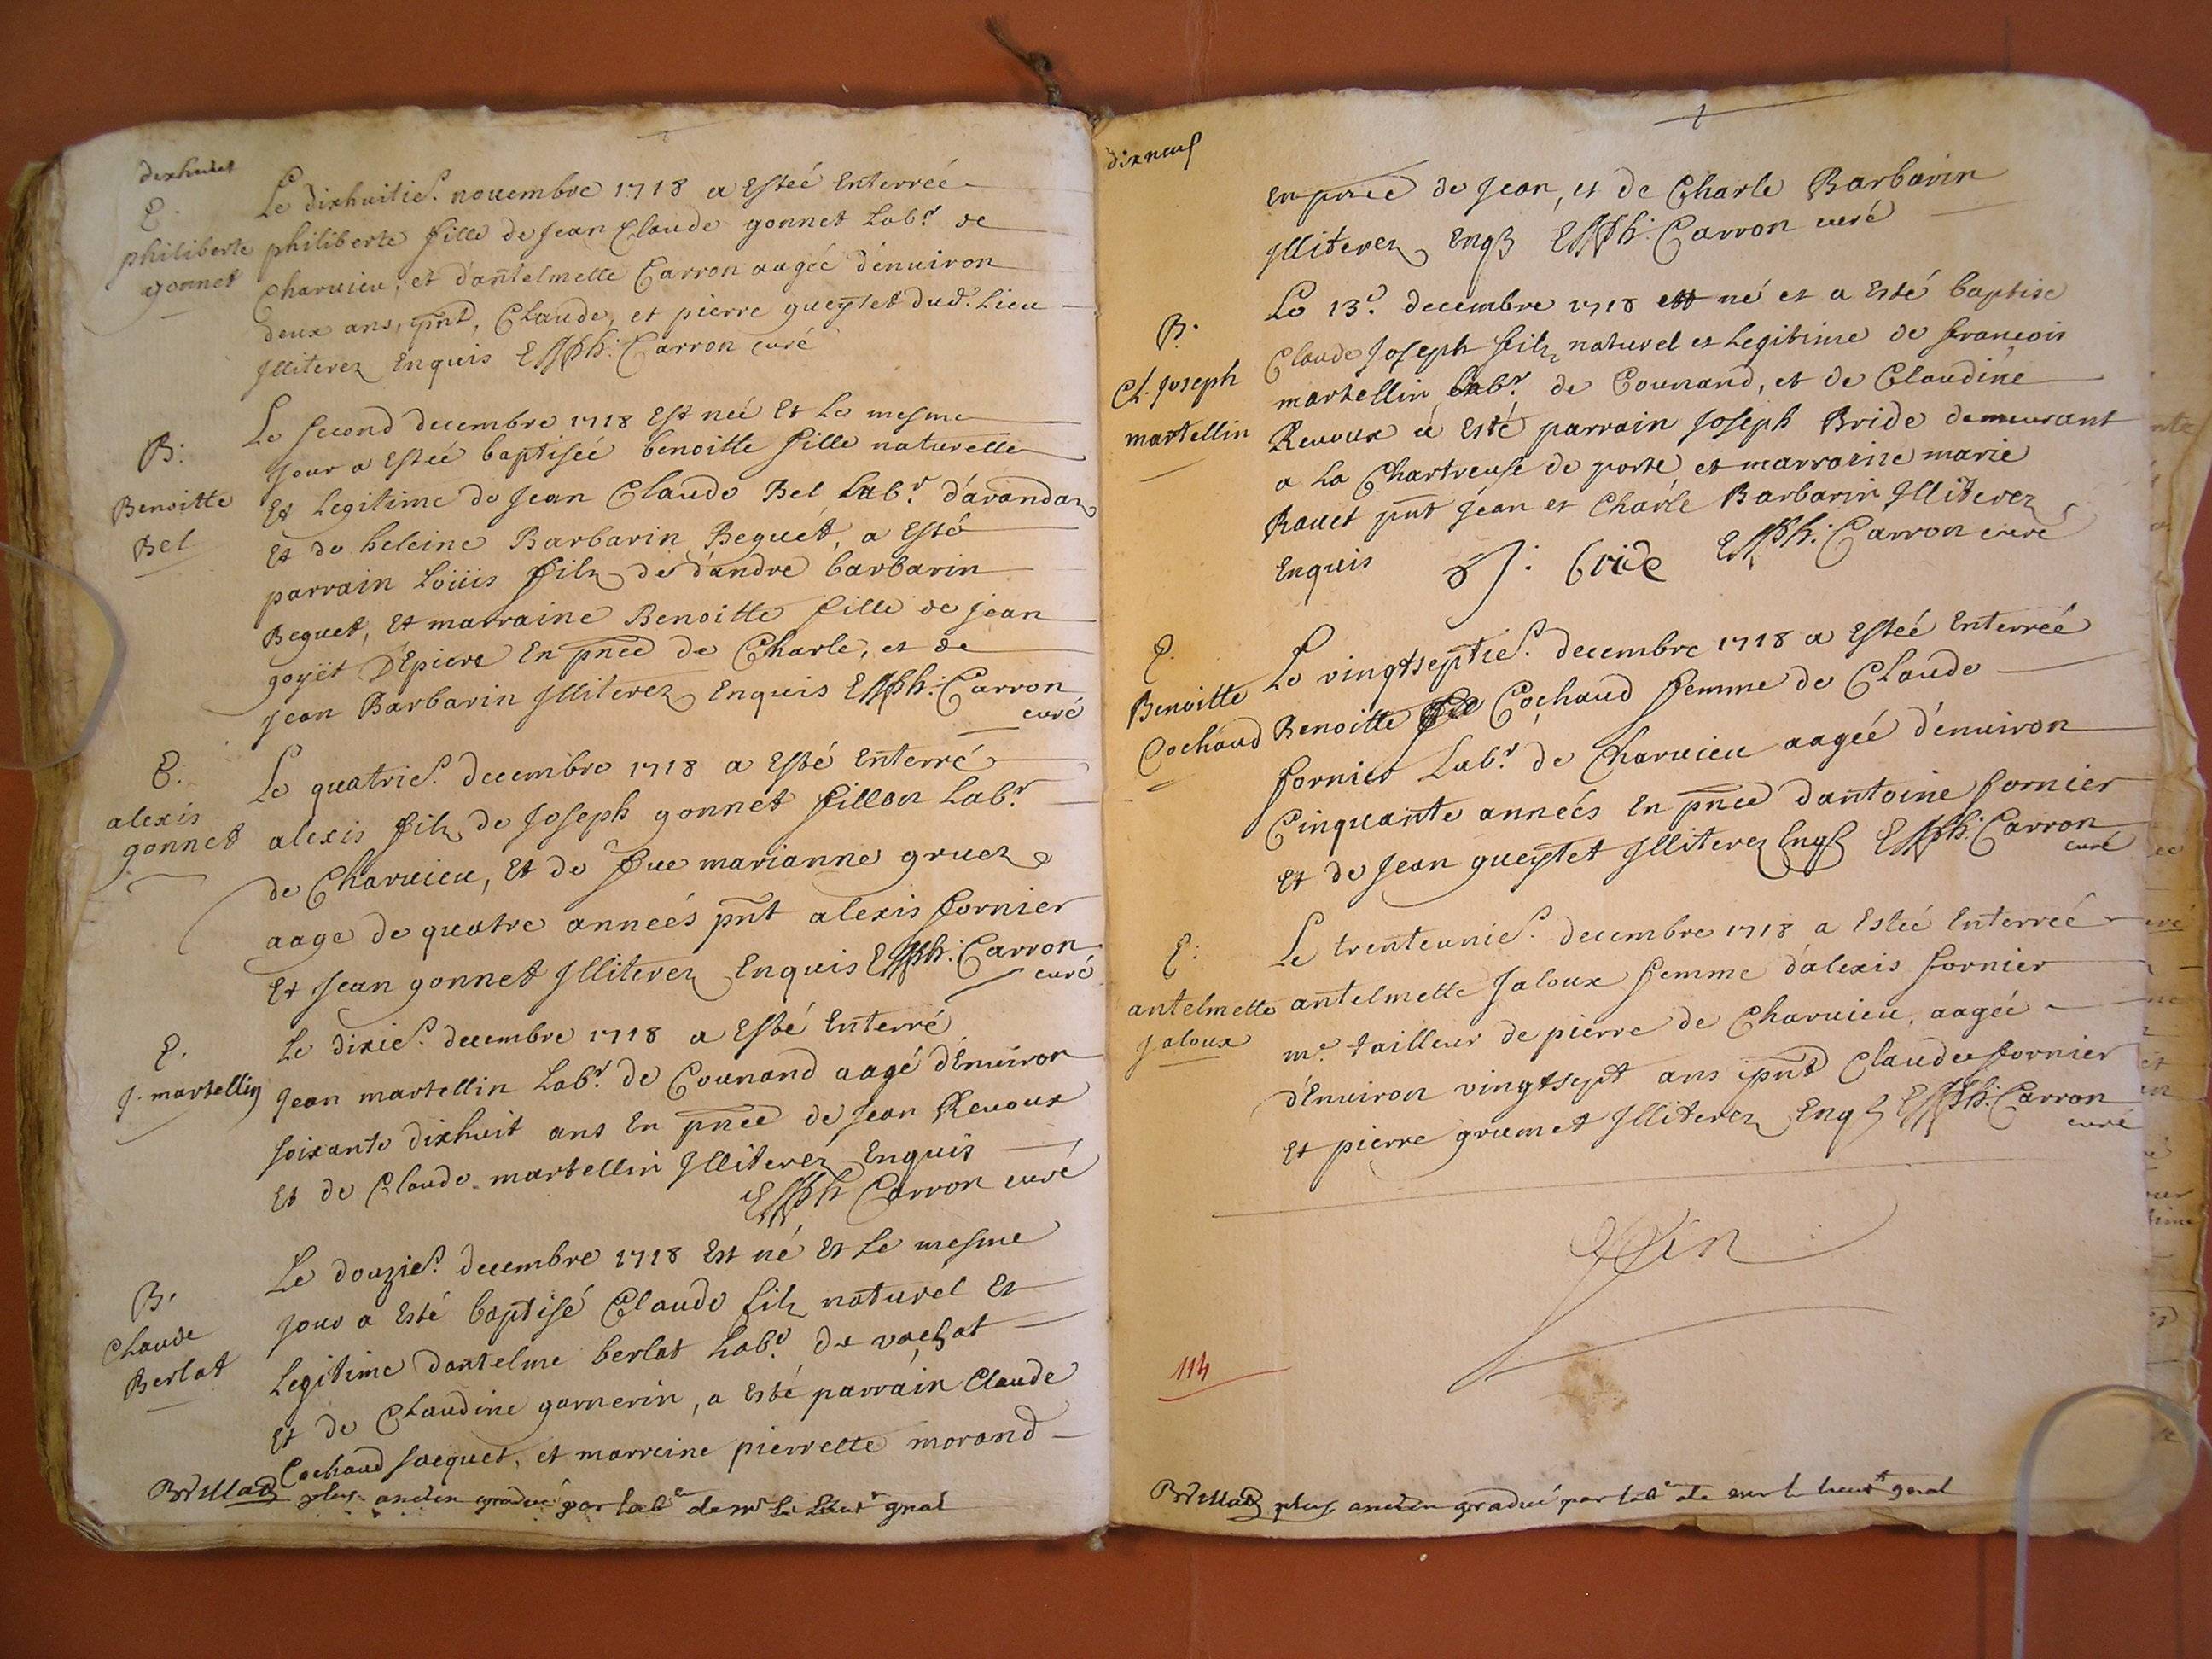 dixhuict
Le dixhuitie.e novembre 1718 a esteé enterreé
E.
philiberte gonnet
philiberte fille de Jean Claude gonnet Labr. de
Charvieu, et d'antelmette Carron aageé d'environ
deux ans, pnt, Claude, et pierre gueytet dud. Lieu
Illiterez Enquis Carron curé
Le second decembre 1718 Est neé Et Le mesme
B:
Benoitte Bel
jour a esteé baptiseé benoitte fille naturelle
Et Legitime de Jean Claude Bel Labr. d'arandaz
Et de heleine Barbarin Beguet, a Esté
parrain Loüis filz de d'andre barbarin
Beguet, Et marraine Benoitte fille de jean
goyët D'Epierre En pnce de Charle, et de
Jean Barbarin Illiterez Enquis Carron
curé
Le quatrie. decembre 1718 a Esté Enterré
E.
alexis gonnet
alexis filz de Joseph gonnet fillon Labr.
de Charvieu, Et de fue marianne gruez
aage de quatre anneés pnt alexis fornier
Et Jean gonnet Illiterez Enquis Carron
curé
Le dixie. decembre 1718 a Esté Enterré
E.
J. martellin
Jean martellin Labr. de Counand aagé d'Environ
soixante dixhuit ans En pnce de Jean Revoux
Et de Claude martellin Illiterez Enquis
Carron curé
Le douzie. decembre 1718 Est né Et Le mesme
B.
Claude Berlat
jour a Esté baptisé Claude filz naturel Et
Legitime d'antelme berlat Labr. de vachat
Et de Claudine garnerin, a Esté parrain Claude
Cochaud Jacquet, et marreine pierrette morand
Brillat plus ancien gradué par lab de mr Le Lieut gnal
dixneuf
En pnce de Jean, et de Charle Barbarin
Illiterez Enqz Carron curé
Le 13e. decembre 1718 est né et a Esté baptise
B.
Cl. Joseph martellin
Claude Joseph filz naturel et Legitime de françois
martellin Labr. de Counand, et de Claudine
Revoux a Esté parrain Joseph Bride demeurant
a La Chartreuse de porte et marraine marie
Ravet pnt jean et Charle Barbarin Illiterez
Enquis J: bride Carron curé
Le vingtseptie. decembre 1718 a Esteé Enterreé
E.
Benoitte Cochaud
Benoitte Cochaud femme de Claude
fornier Labr. de Charvieu aageé d'environ
Cinquante anneés En pnce d'antoine fornier
Et de Jean gueytet Illiterez Enqz Carron
curé
Le trenteunie. decembre 1718 a Esteé Enterreé
E:
antelmette Jaloux
antelmette Jaloux femme d'alexis fornier
mr. tailleur de pierre de Charvieu, aageé
d'Environ vingtsept ans pnt Claude fornier
Et pierre grumet Illiterez Enqz Carron
curé
Fin
114
Brillat plus ancien gradué par lab de mr le lieut gnal